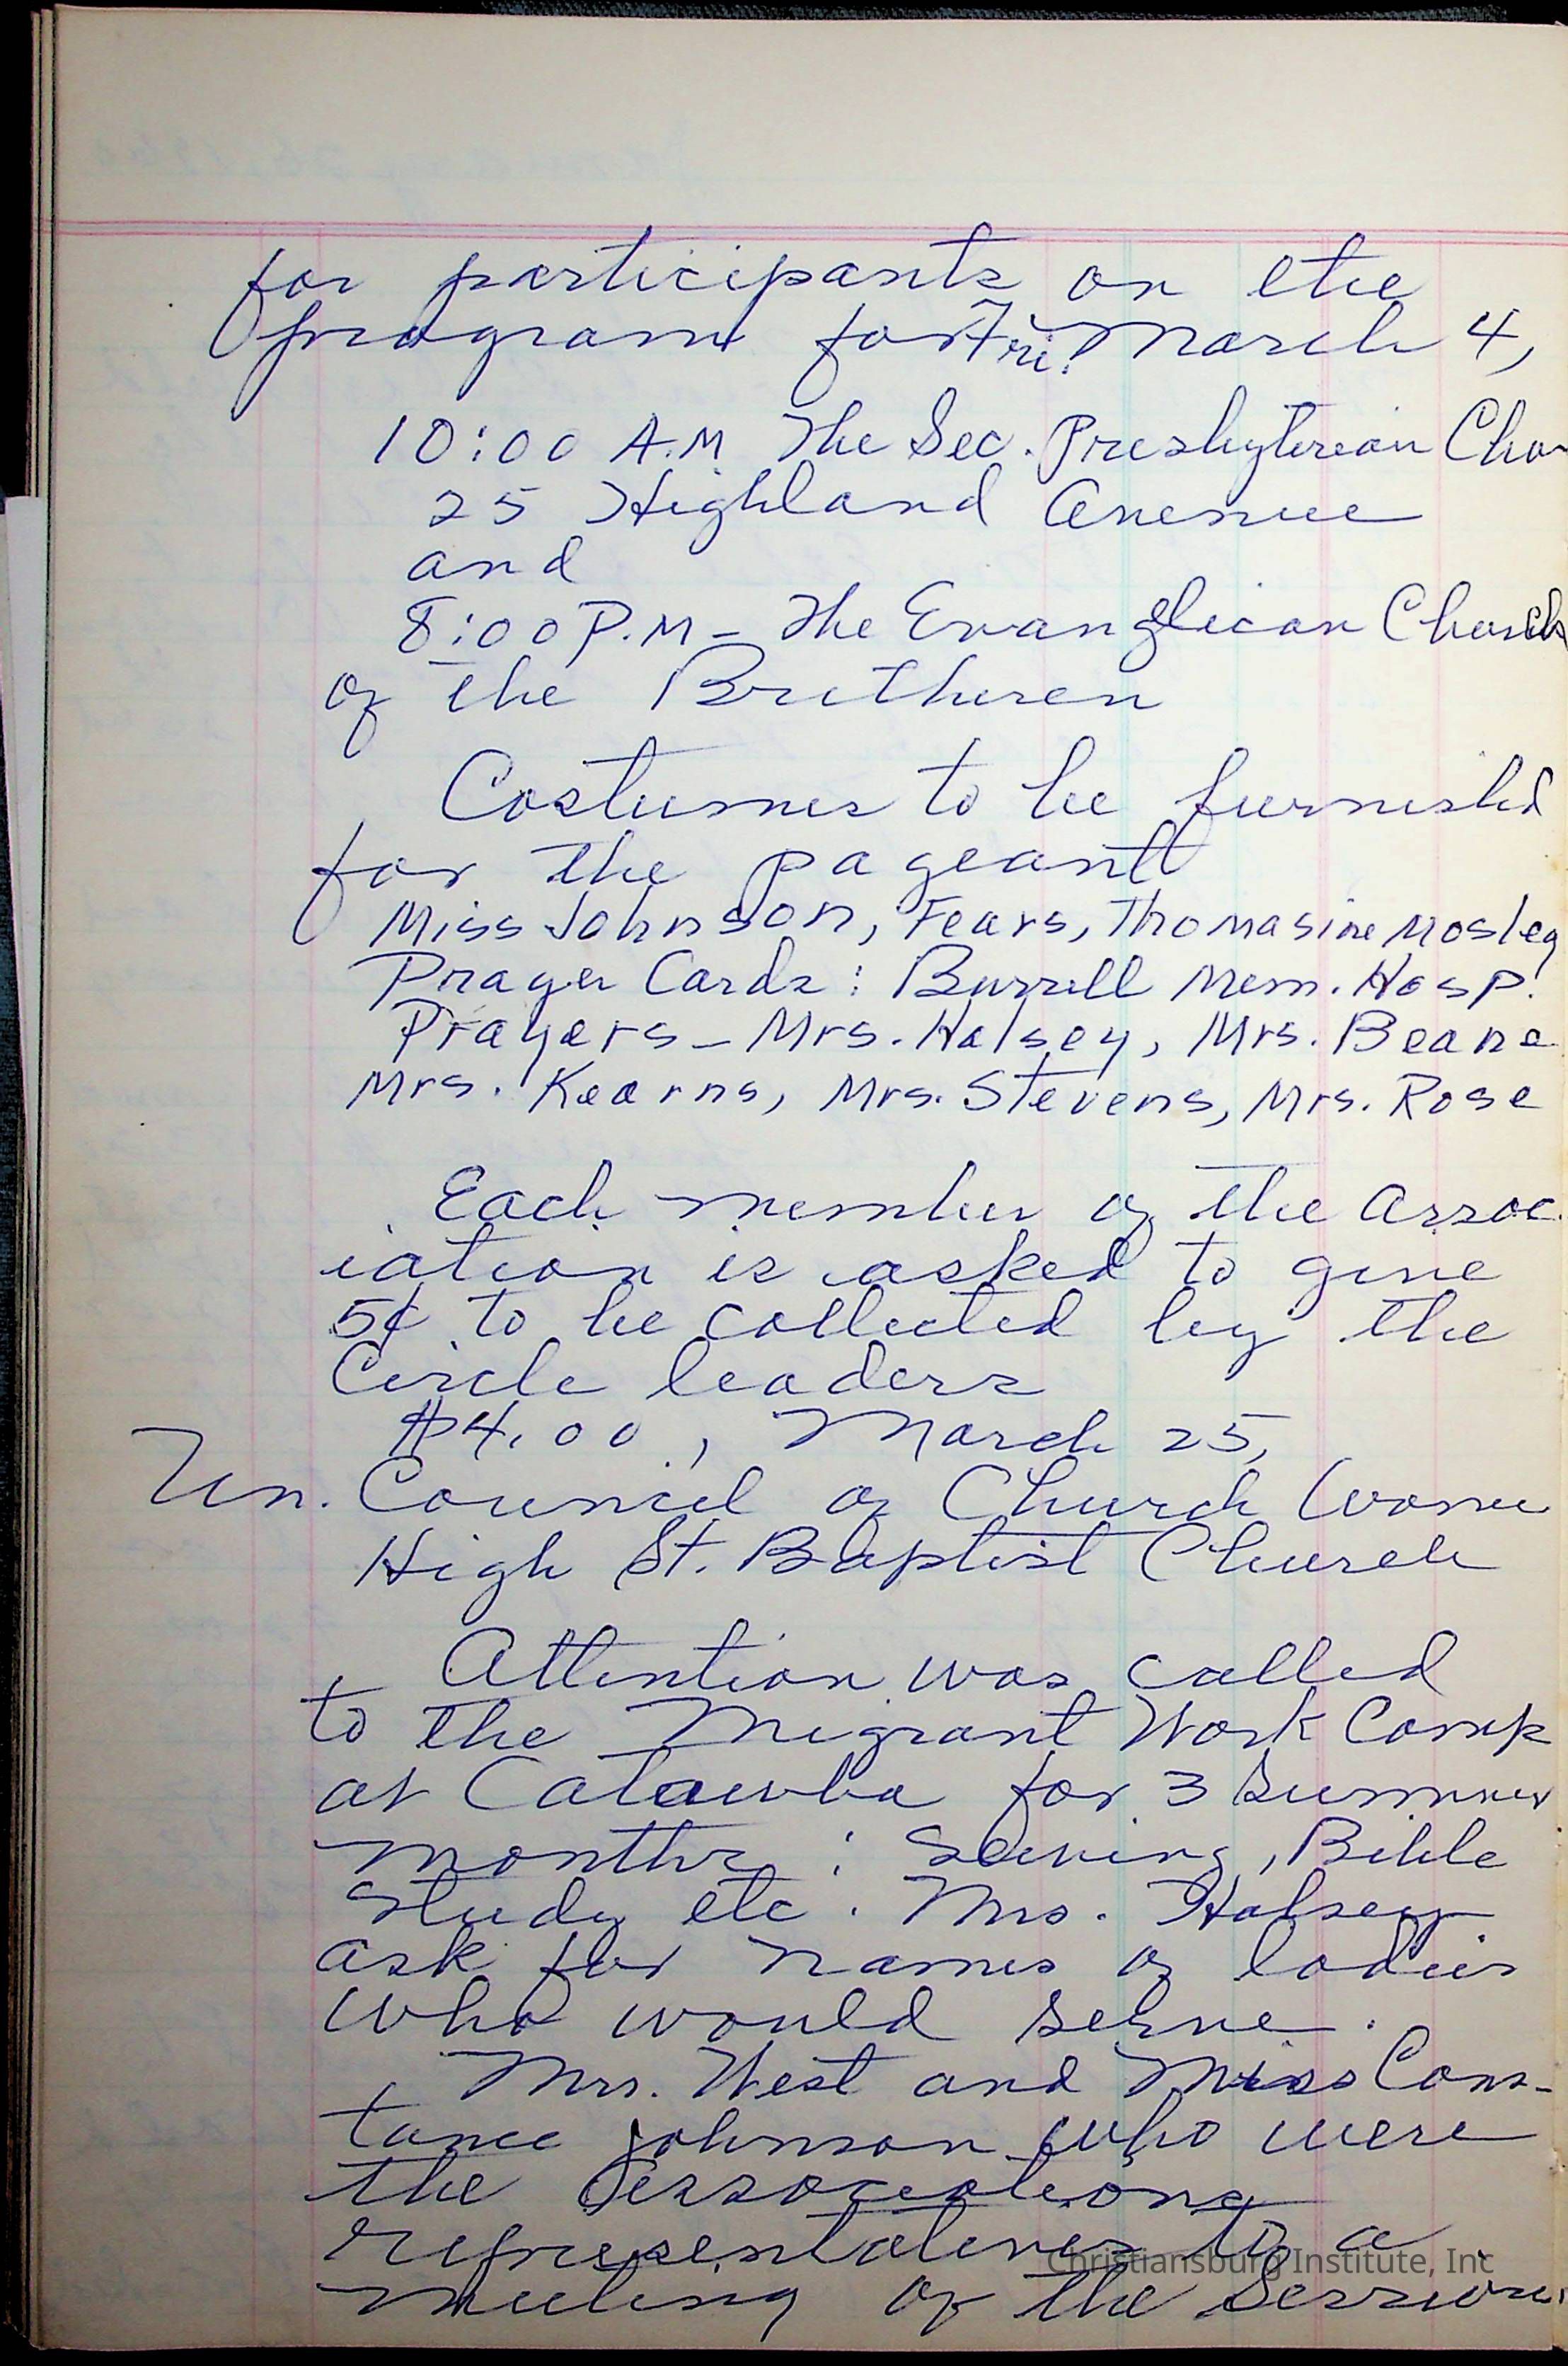 for participants on the
program for Fri. March 4,
10:00 A.M The Sec. Presbyterian Chu
25 Highland Avenue
and
8:00 P.M - The Evanglican Church
of the Bretheren
Costumes to be furnished
for the pageant
Miss Johnson, Fears, Thomasine Mosley
Prayer Cards: Burrell Mem. Hosp.
Prayers - Mrs. Halsey, Mrs. Beane
Mrs. Kearns, Mrs. Stevens, Mrs. Rose
Each member of the Assoc.
iation is asked to give
5¢ to be collected by the
Circle leaders
$4.00, March 25,
Un. Council of Church Women
High St. Baptist Church
Attention was called
to the Migrant Work Camp
at Catawba for 3 Summer
months: Sewing, Bible
Study etc. Mrs. Halsey
ask for names of ladies
who would serve.
Mrs. West and Miss Cons-
tance Johnson who were
the Associations
representatives to a
meeting of the Session
Christiansburg Institute, Inc